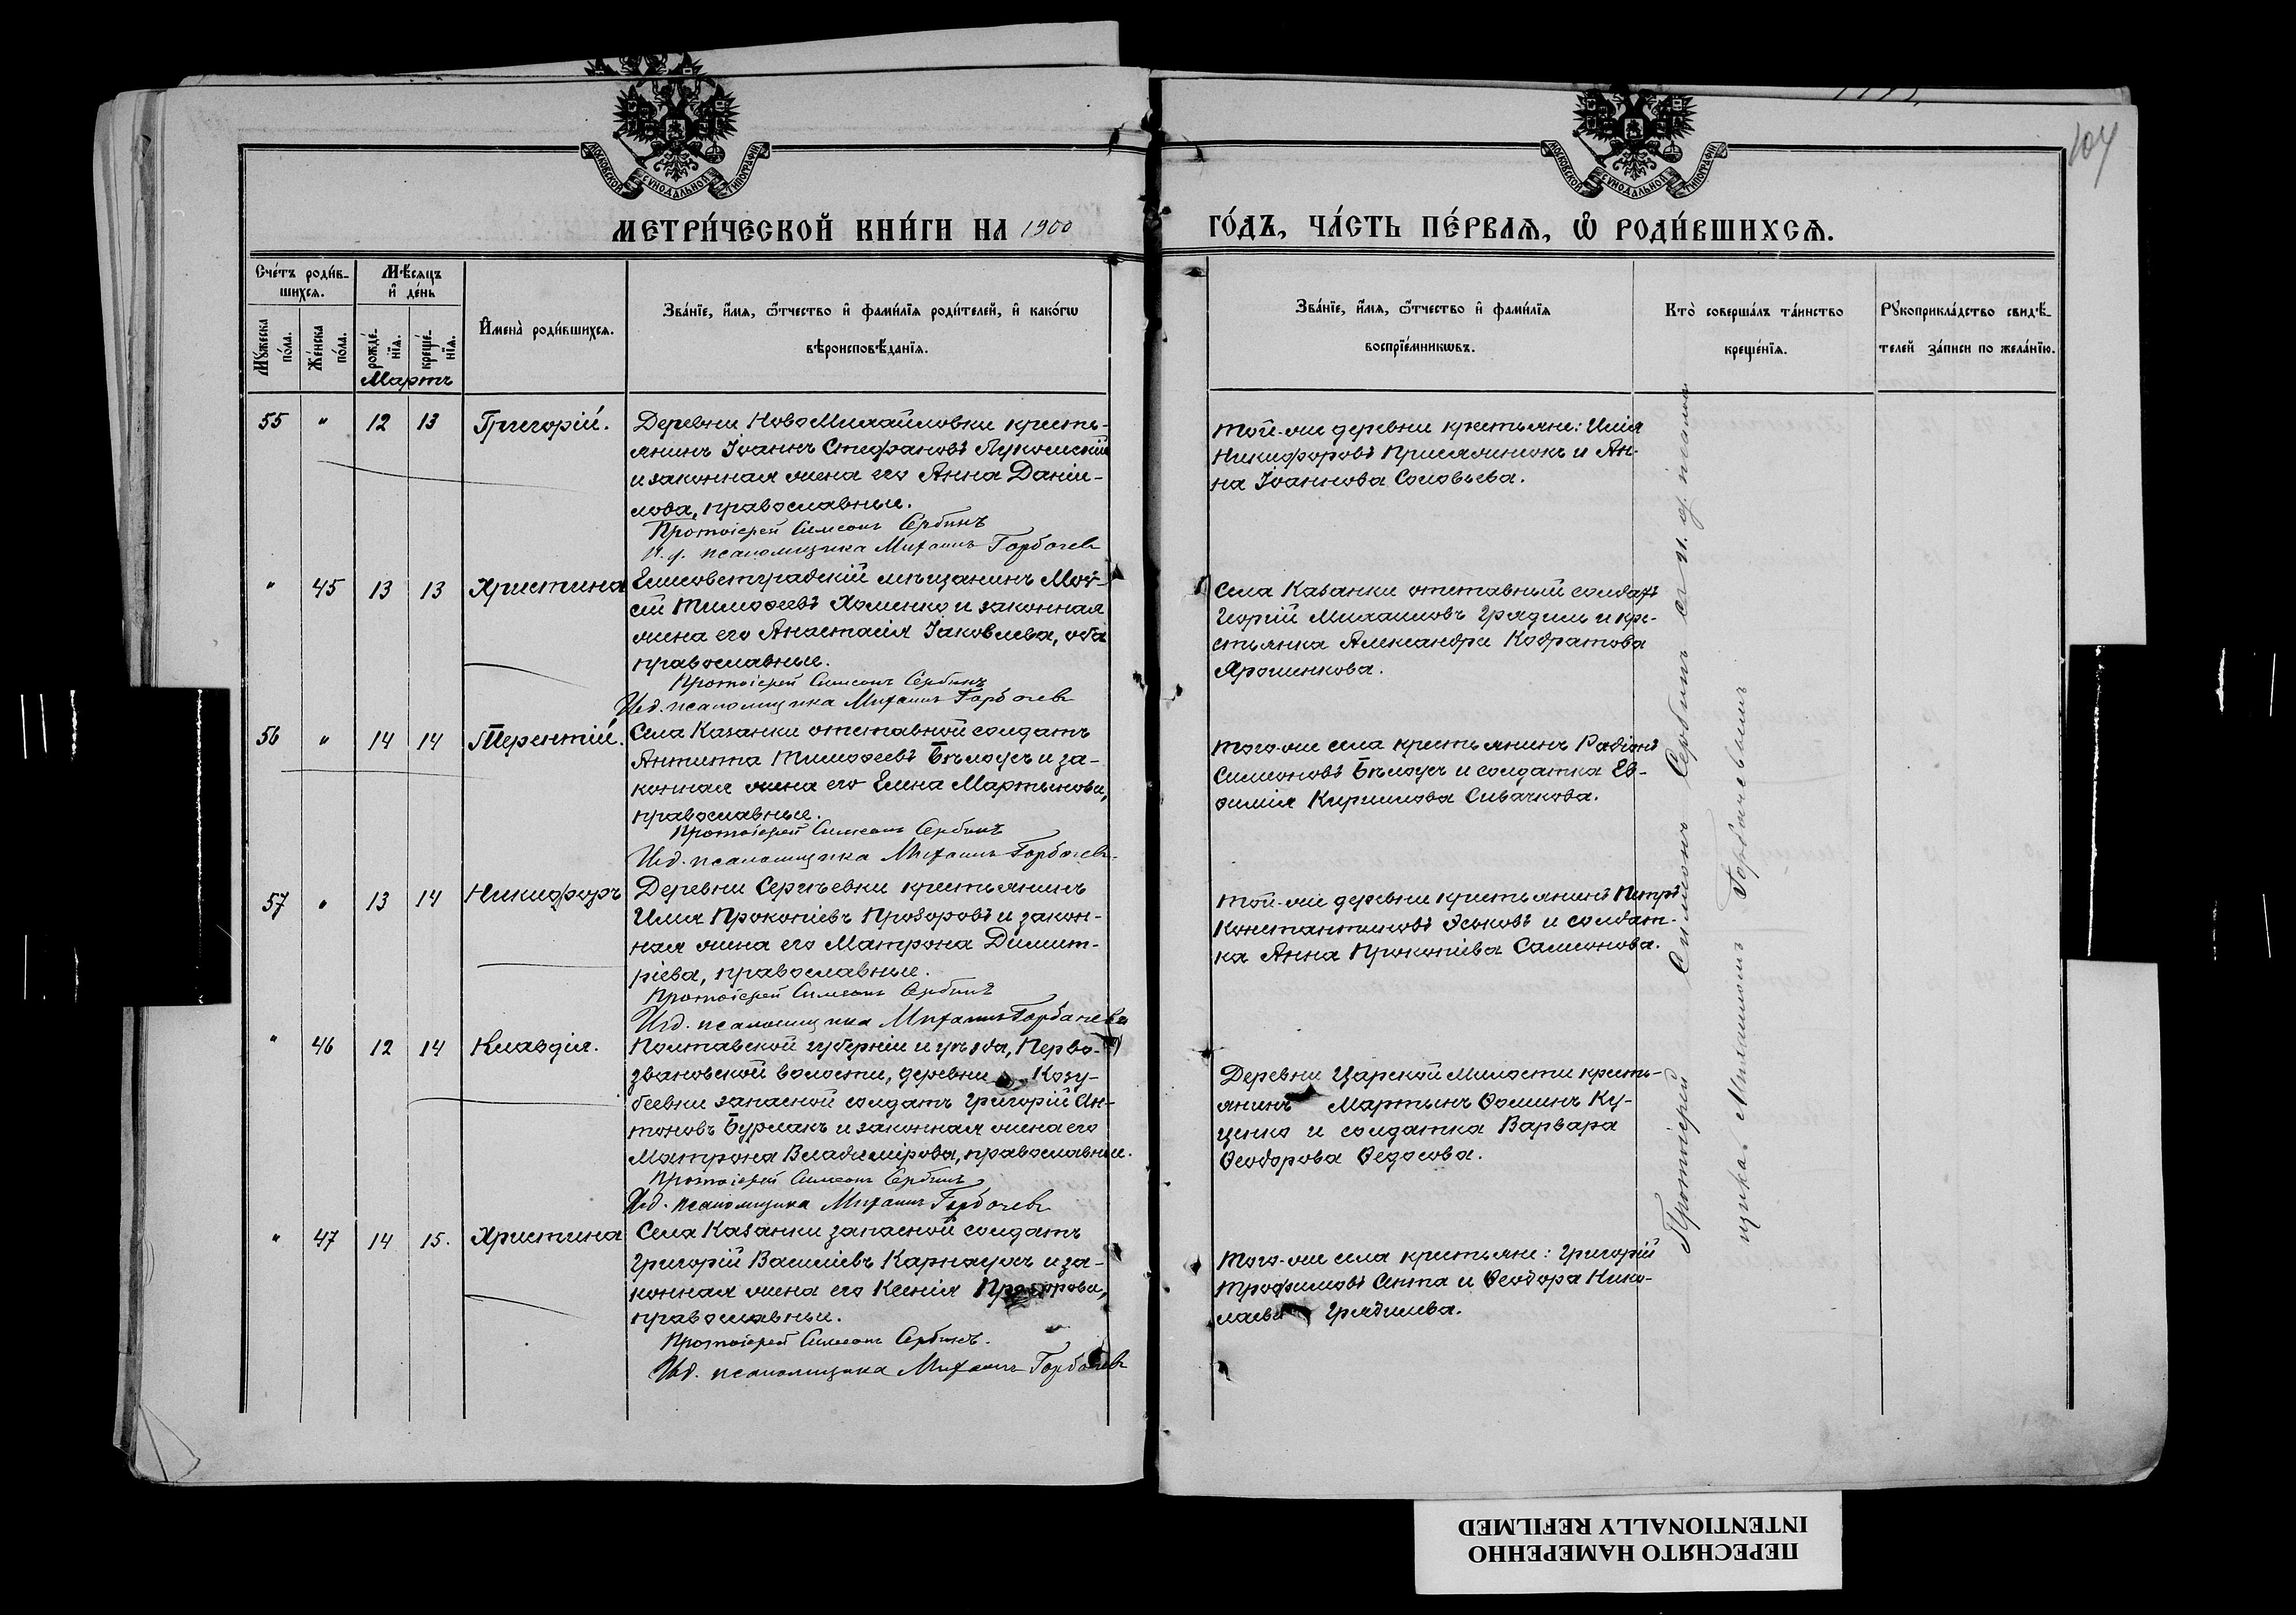 104
МОСКОВСКОЙ СѴНОДАЛЬНОЙ ТИПОГРАФІИ
МОСКОВСКОЙ СѴНОДАЛЬНОЙ ТИПОГРАФІИ
МЕТРИ́ЧЕСКОЙ КНИ́ГИ НА 1900
ГО́ДЪ, ЧА́СТЬ ПЕ́РВАѦ, Ѽ РОДИ́ВШИХСѦ.
Сче́тъ роди́в-
шихсѧ.
Мꙋ́жеска
по́ла.
Же́нска
по́ла.
Мѣ́сяцъ
и҆ де́нь
рожде́-
нїѧ.
креще́-
нїѧ.
Мартъ
И҆мена̀ роди́вшихсѧ.
Зва́нїе, и҆́мѧ, ѻ҆́тчество и҆ фами́лїѧ роди́телей, и҆ како́гѡ
вѣроисповѣ́данїѧ.
Зва́нїе, и҆́мѧ, ѻ҆́тчество и҆ фами́лїѧ
воспрїе́мникѡвъ.
Кто̀ соверша́лъ та́инство
креще́нїѧ.
Рꙋкоприкла́дство свидѣ́-
телей за́писи по жела́нїю.
55 " 12 13 Григорій.
Деревни НовоМихайловки кресть-
янинъ Іоаннъ Стефановъ Лукомскій
и законная жена его Анна Даніи-
лова, православные.
Протоіерей Симеонъ Сербинъ
И. д. псаломщика Михаилъ Горбачевъ
Той-же деревни крестьяне: Илія
Никифоровъ Присяжнюкъ и Ан-
на Іоаннова Соловьева.
" 45 13 13 Христина
Елисоветградскій мѣщанинъ Мои-
сей Тимоѳеевъ Хоменко и законная
жена его Анастасія Іаковлева, оба
православные.
Протоіерей Симеонъ Сербинъ
И. д. псаломщика Михаилъ Горбачевъ
Села Казанки отставный солдатъ
Георгій Михаиловъ Грядиль и кре-
стьянка Александра Кодратова
Ярошенкова.
56 " 14 14 Терентій.
Села Казанки отставной солдатъ
Антипа Тимоѳеевъ Бѣлоусъ и за-
конная жена его Елена Мартынова,
православные.
Протоіерей Симеонъ Сербинъ
И. д. псаломщика Михаилъ Горбачевъ
Того-же села крестьянинъ Радіонъ
Симеоновъ Бѣлоусъ и солдатка Ев-
ѳимія Кириллова Сивачкова.
57 " 13 14 Никифоръ
Деревни Сергѣевки крестьянинъ
Илія Прокопіевъ Прозоровъ и закон-
ная жена его Матрона Димит-
ріева, православные.
Протоіерей Симеонъ Сербинъ
И. д. псаломщика Михаилъ Горбачевъ
Той-же деревни крестьянинъ Петръ
Константиновъ Эськовъ и солдат-
ка Анна Прокопіева Самсонова.
" 46 12 14 Клавдія.
Полтавской губерніи и уѣзда, Перво-
звановской волости, деревни Козу-
беевки запасной солдатъ Григорій Ан-
тоновъ Бурлакъ и законная жена его
Матрона Владимірова, православные.
Протоіерей Симеонъ Сербинъ
И. д. псаломщика Михаилъ Горбачевъ
Деревни Царской Милости кресть-
янинъ Мартынъ Ѳоминъ Ку-
ценко и солдатка Варвара
Ѳеодорова Ѳедосова.
" 47 14 15. Христина
Села Казанки запасной солдатъ
Григорій Василіевъ Карнаухъ и за-
конная жена его Ксенія Прохорова,
православные.
Протоіерей Симеонъ Сербинъ.
И. д. псаломщика Михаилъ Горбачевъ
Того-же села крестьяне: Григорій
Трофимовъ Сипта и Ѳеодора Нико-
лаева Грядилева.
Протоіерей Симеонъ Сербинъ съ и. д. псалом-
щика Михаиломъ Горбачевымъ
ПЕРЕСНЯТО НАМЕРЕННО
INTENTIONALLY REFILMED